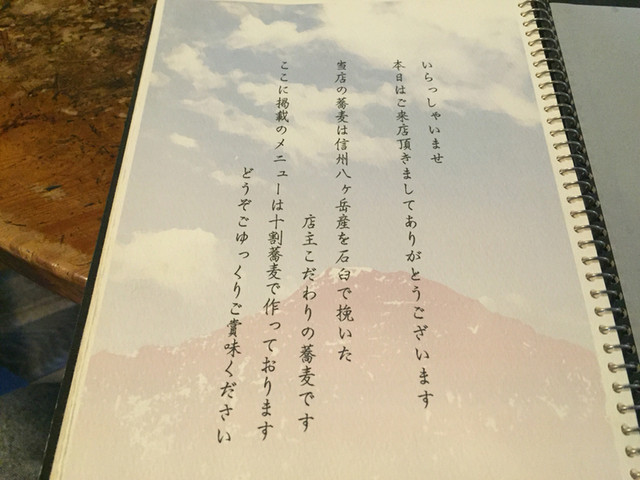 いらっしゃいませ
本日はご来店頂きましてありがとうございます
当店の蕎麦は信州八ヶ岳産を石臼で挽いた
店主こだわりの蕎麦です
ここに掲載のメニューは十割蕎麦で作っております
どうぞごゆっくりご賞味ください